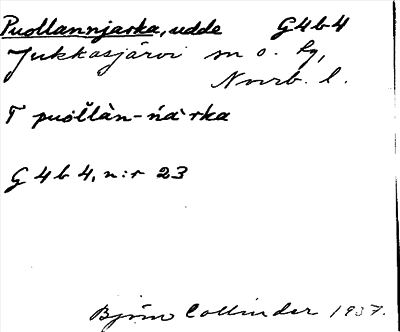 Puollannjarka, udde G4b4
Jukkasjärvi sn o. lg,
Norrb. l.
T puoĺ̄làn-ńàrka
G 4 b 4, n:r 23
Björn Collinder 1937.